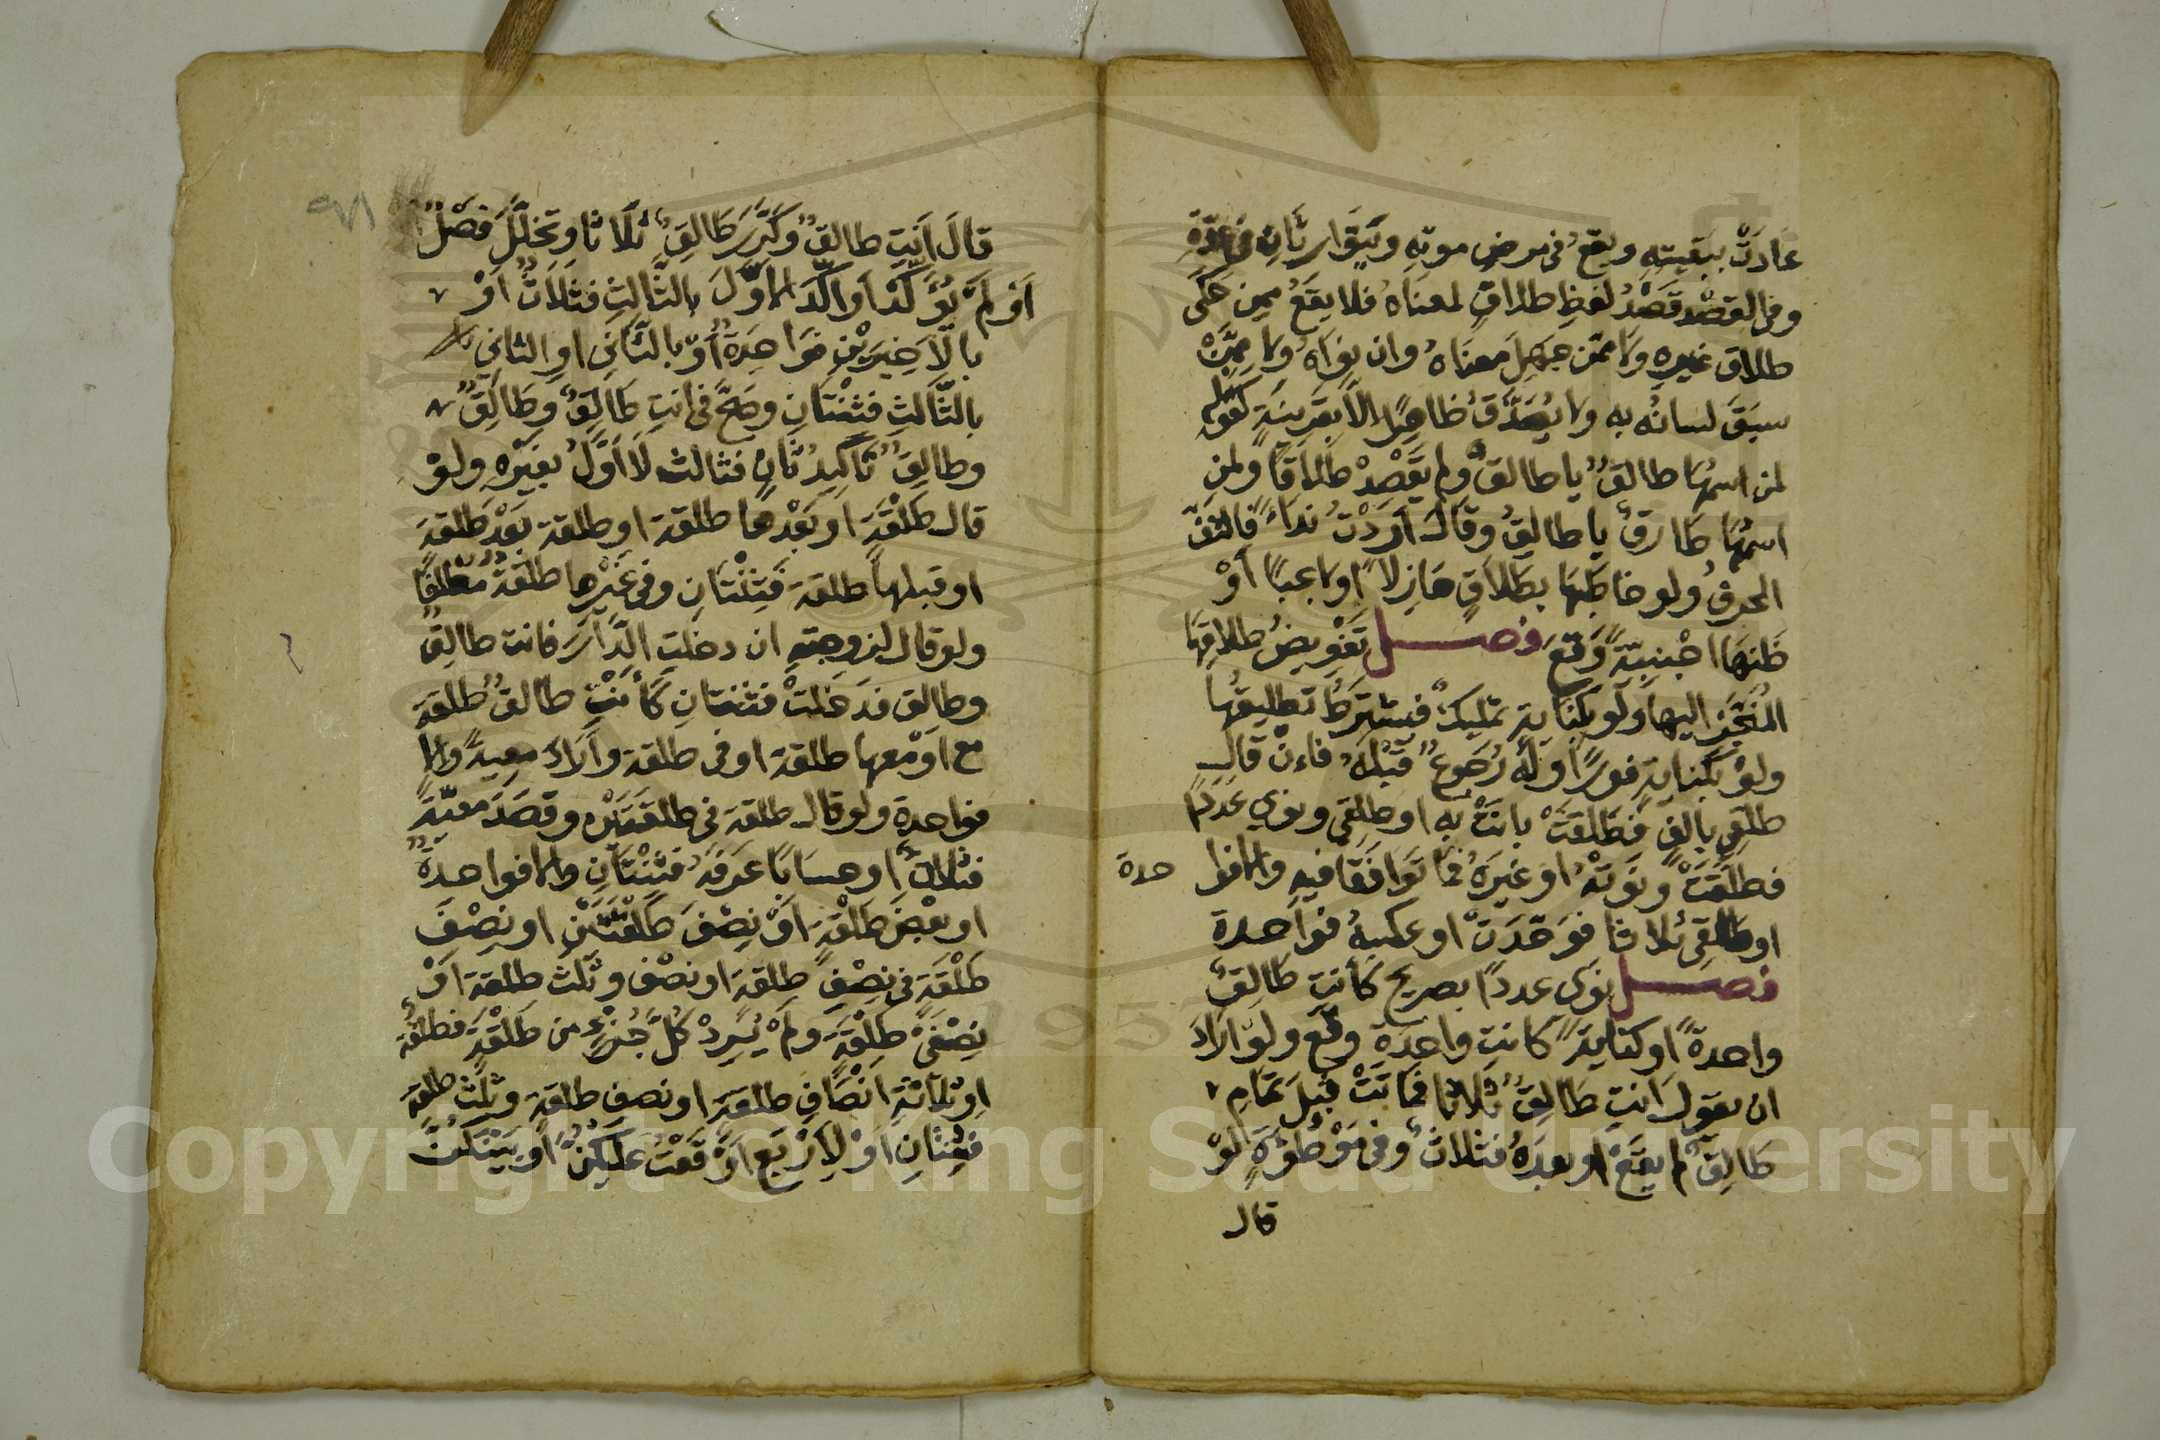 عَادَتْ ببقيته ويقع في مرض موته ويتوارثان في عدة
وفي القصد قصد لفظ طلاق لمعناه فلا يقع ممن حكى
طلاق غيره ولا ممن جهل معناه وان نواه ولا ممن
سبق لسانه به ولا يصدق ظاهرا الا بقرينة كقوله
لمن اسمها طالق يا طالق ولم يقصد طلاقا ولمن
اسمها طارق يا طالق وقال اردت نداء فالتف
الحرف ولو خاطبها بطلاق هازلا او لاعبا أو
ظنها اجنبية وقع فصل تفويض طلاقها
المنجز اليها ولو بكناية تمليك فيشترط تطليقها
ولو بكناية فورا وله رجوع قبله فاءن قال
طلقي بالف فطلقت بانت به او طلقي ونوى عددا
فطلقت ونوته او غيره فما توافقا فيه والا فوا
حدة
او طلقي ثلاثا فوحدت او عكسه فواحدة
فصل نوى عددا بصريح كأنت طالق
واحدة او كناية كانت واحدة وقع ولو اراد
ان يقول انت طالق ثلاثا فماتت قبل تمام
طالق لم يقع او بعده فثلاث وفي موطؤة لو
قال
قال انت طالق وكرر طالق ثلاثا وتخلل فصل
او لم يؤكد او اكد الاول بالثالث فثلاث او
بالاخيرين فواحدة او بالثاني او الثاني
بالثالث فثنتان وصح في انت طالق وطالق
وطالق تاكيد ثان فثالث لا اول بغيره ولو
قال طلقة او بعدها طلقة او طلقة بعد طلقة
او قبلها طلقة فثنتان وفي غيرها طلقة مطلقا
ولو قال لزوجته ان دخلت الدار فانت طالق
وطالق فدخلت فثنتان كأنت طالق طلقة
مع او معها طلقة او في طلقة واراد معية والا
فواحدة ولو قال طلقة في طلقتين وقصد معية
فثلاث او حسابا عرفه فثنتان والا فواحدة
او بعض طلقة او نصف طلقتين او نصف
طلقة في نصف طلقة او نصف وثلث طلقة او
نصفي طلقة ولم يرد كل جزء من طلقة فطلقة
او ثلاثة انصاف طلقة او نصف طلقة وثلث طلقة
فثنتان او لاربع اوقعت عليكن او بينكن
Copyright © King Saud University
1957